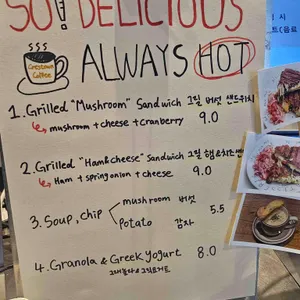 SO! DELICIOUS
Crestown Coffee
ALWAYS HOT
1. Grilled "Mushroom" Sandwich 그릴 버섯 샌드위치
↳ mushroom + cheese + cranberry 9.0
2. Grilled "Ham&cheese" Sandwich 그릴 햄&치즈샌
↳ Ham + spring onion + cheese 9.0
3. Soup, chip
mushroom 버섯
potato 감자
5.5
4. Granola & Greek Yogurt 8.0
그래놀라 & 그릭요거트